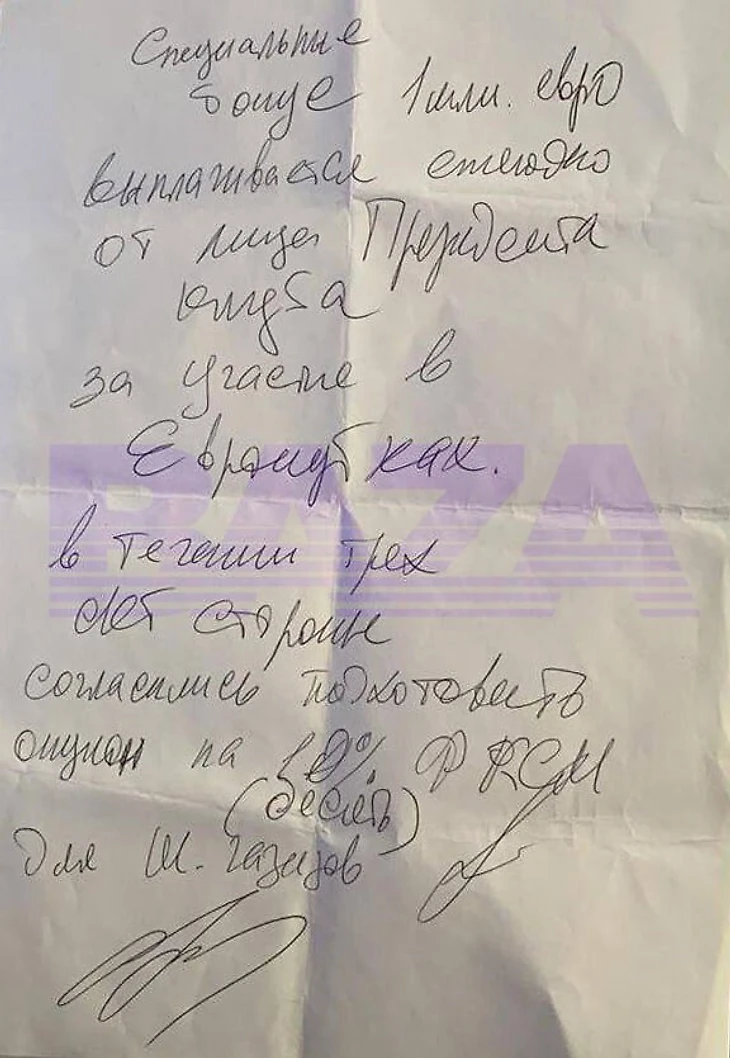 Специальные
бонус 1 млн. евро
выплачивается ежегодно
от лица Президента
клуба
за участие в
Еврокубках.
в течении трех
лет стороны
согласились подготовить
опцион на 10% ФКСМ
(десять)
для Ш. Газизов
BAZA